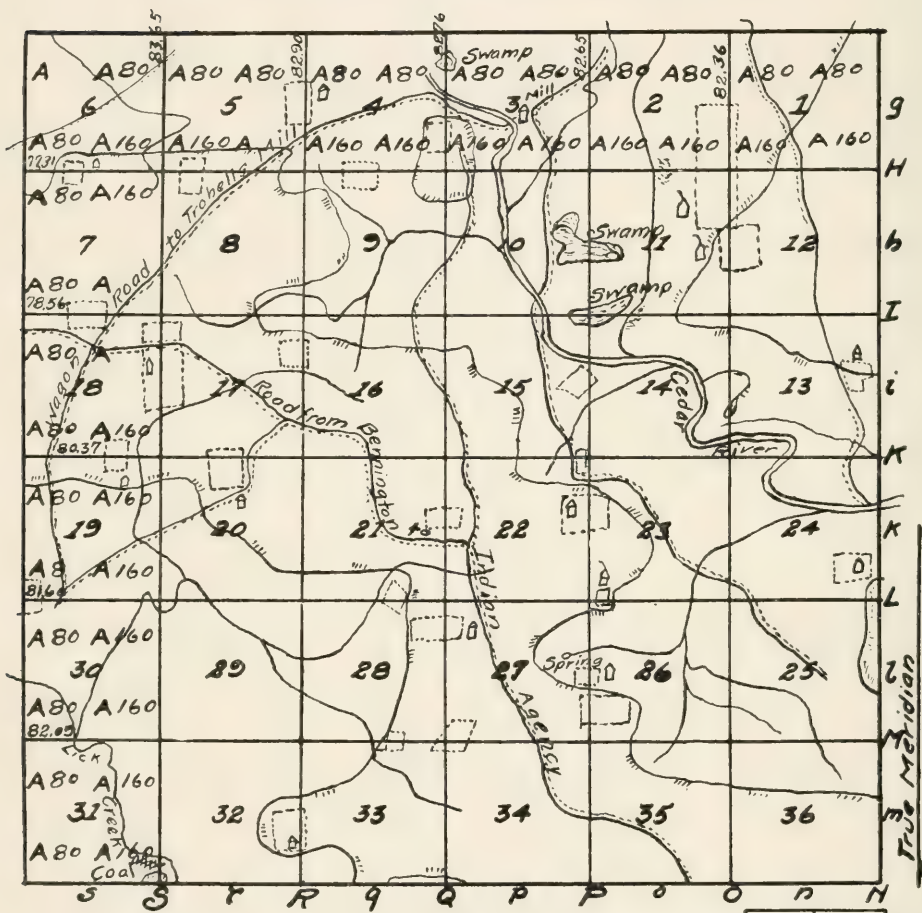 83.65 82.90 82.76 82.65 82.36
Swamp
A A80 A80 A80 A80 A80 A80 A80 A80 A80 A80 A80
6 5 4 3 Mill 2 1 g
A80 A160 A160 A160 A160 A160 A160 A160 A160 A160 A160 A160
77.31 H
A80 A160
Wagon Road to Trobello
7 8 9 10 Swamp 11 12 h
A80 A
78.56 Swamp I
A80 A
18 17 16 15 14 13 i
Road from Bennington to Indian Agency
Cedar River
A80 A160
80.37 K
A80 A160
19 20 21 22 23 24 K
A8 A160
81.60 L
A80 A160
30 29 28 27 26 25 l
Spring
A80 A160
82.05 M
ck Creek
A80 A160
31 32 33 34 35 36 m
A80 A160
Coal
True Meridian
s S r R q Q p P o O n N